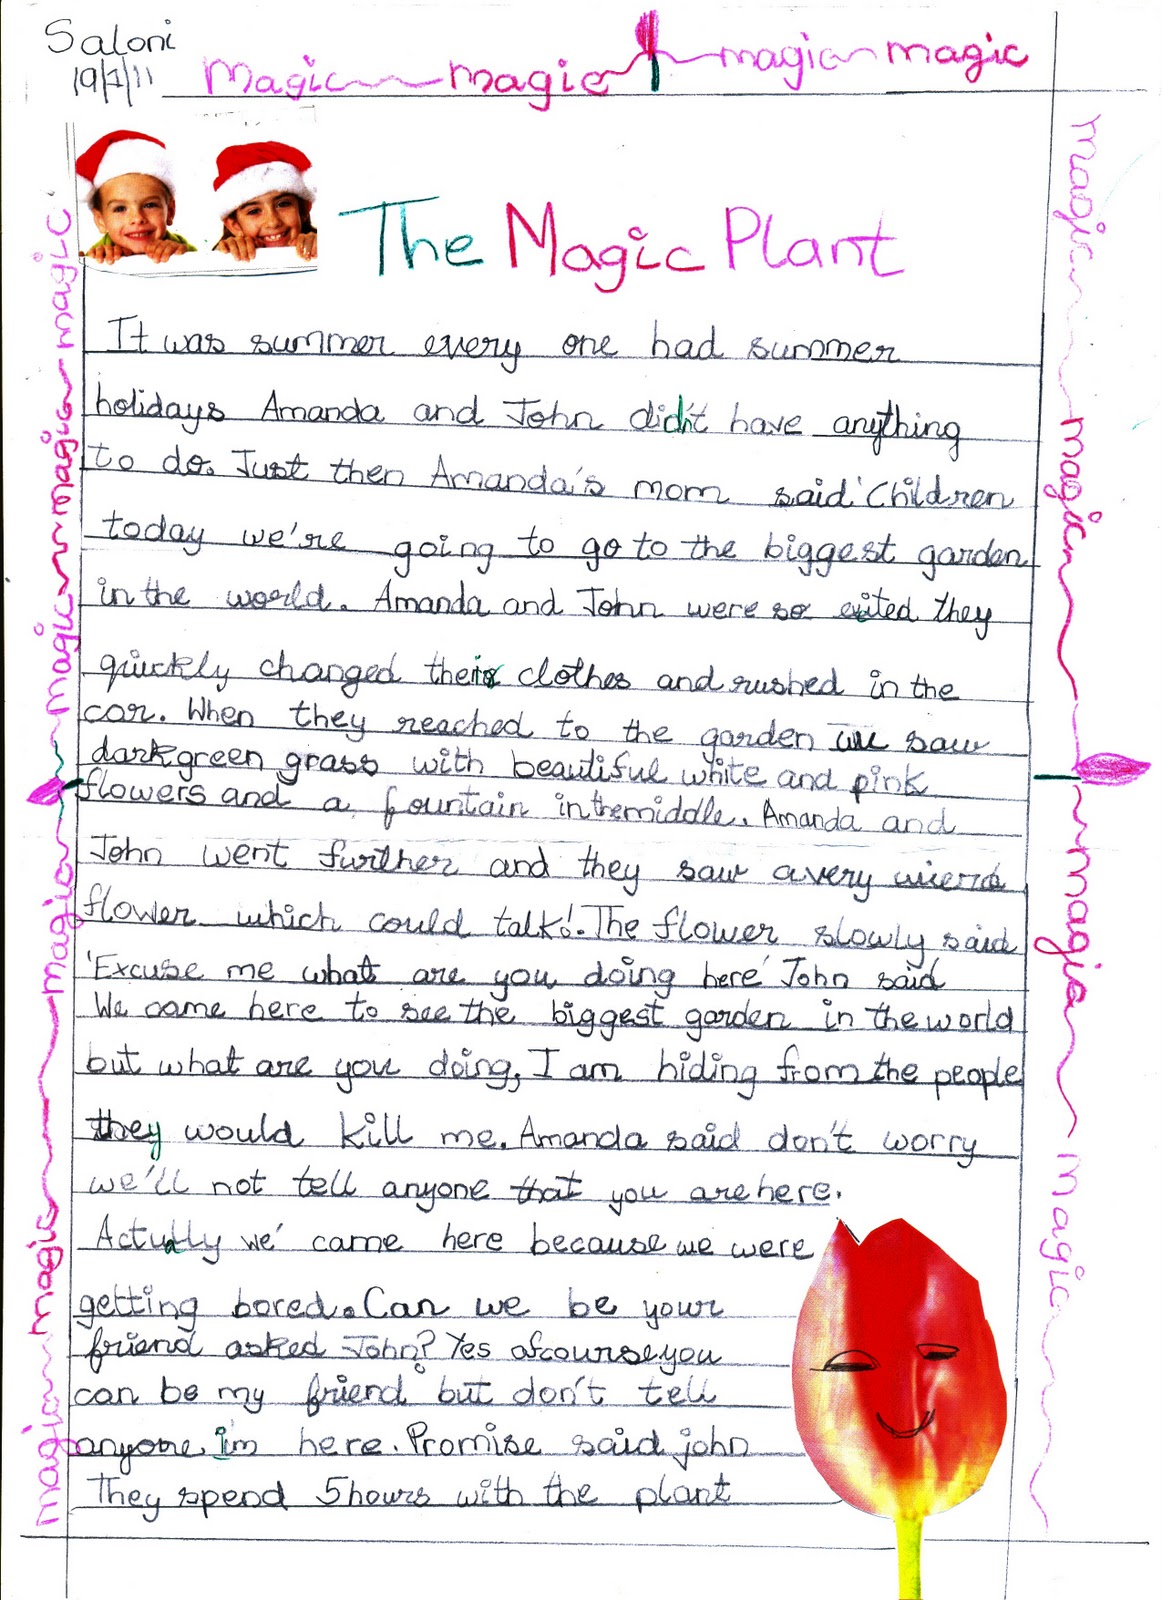 Saloni
19/7/11
magic magic magic magic
The Magic Plant
It was summer every one had summer
holidays Amanda and John didn't have anything
to do. Just then Amanda's mom said 'Children
today we're going to go to the biggest garden
in the world. Amanda and John were so exited they
quickly changed their clothes and rushed in the
car. When they reached to the garden saw
dark green grass with beautiful white and pink
flowers and a fountain in the middle. Amanda and
John went further and they saw a very wierd
flower which could talk!. The flower slowly said
'Excuse me what are you doing here' John said
We came here to see the biggest garden in the world
but what are you doing, I am hiding from the people
they would kill me. Amanda said don't worry
we'll not tell anyone that you are here.
Actually we' came here because we were
getting bored. Can we be your
friend asked John? Yes ofcourse you
can be my friend but don't tell
anyone im here. Promise said john
They spend 5 hours with the plant
magic magic magic magic magic magic magic
magic magic magic magic